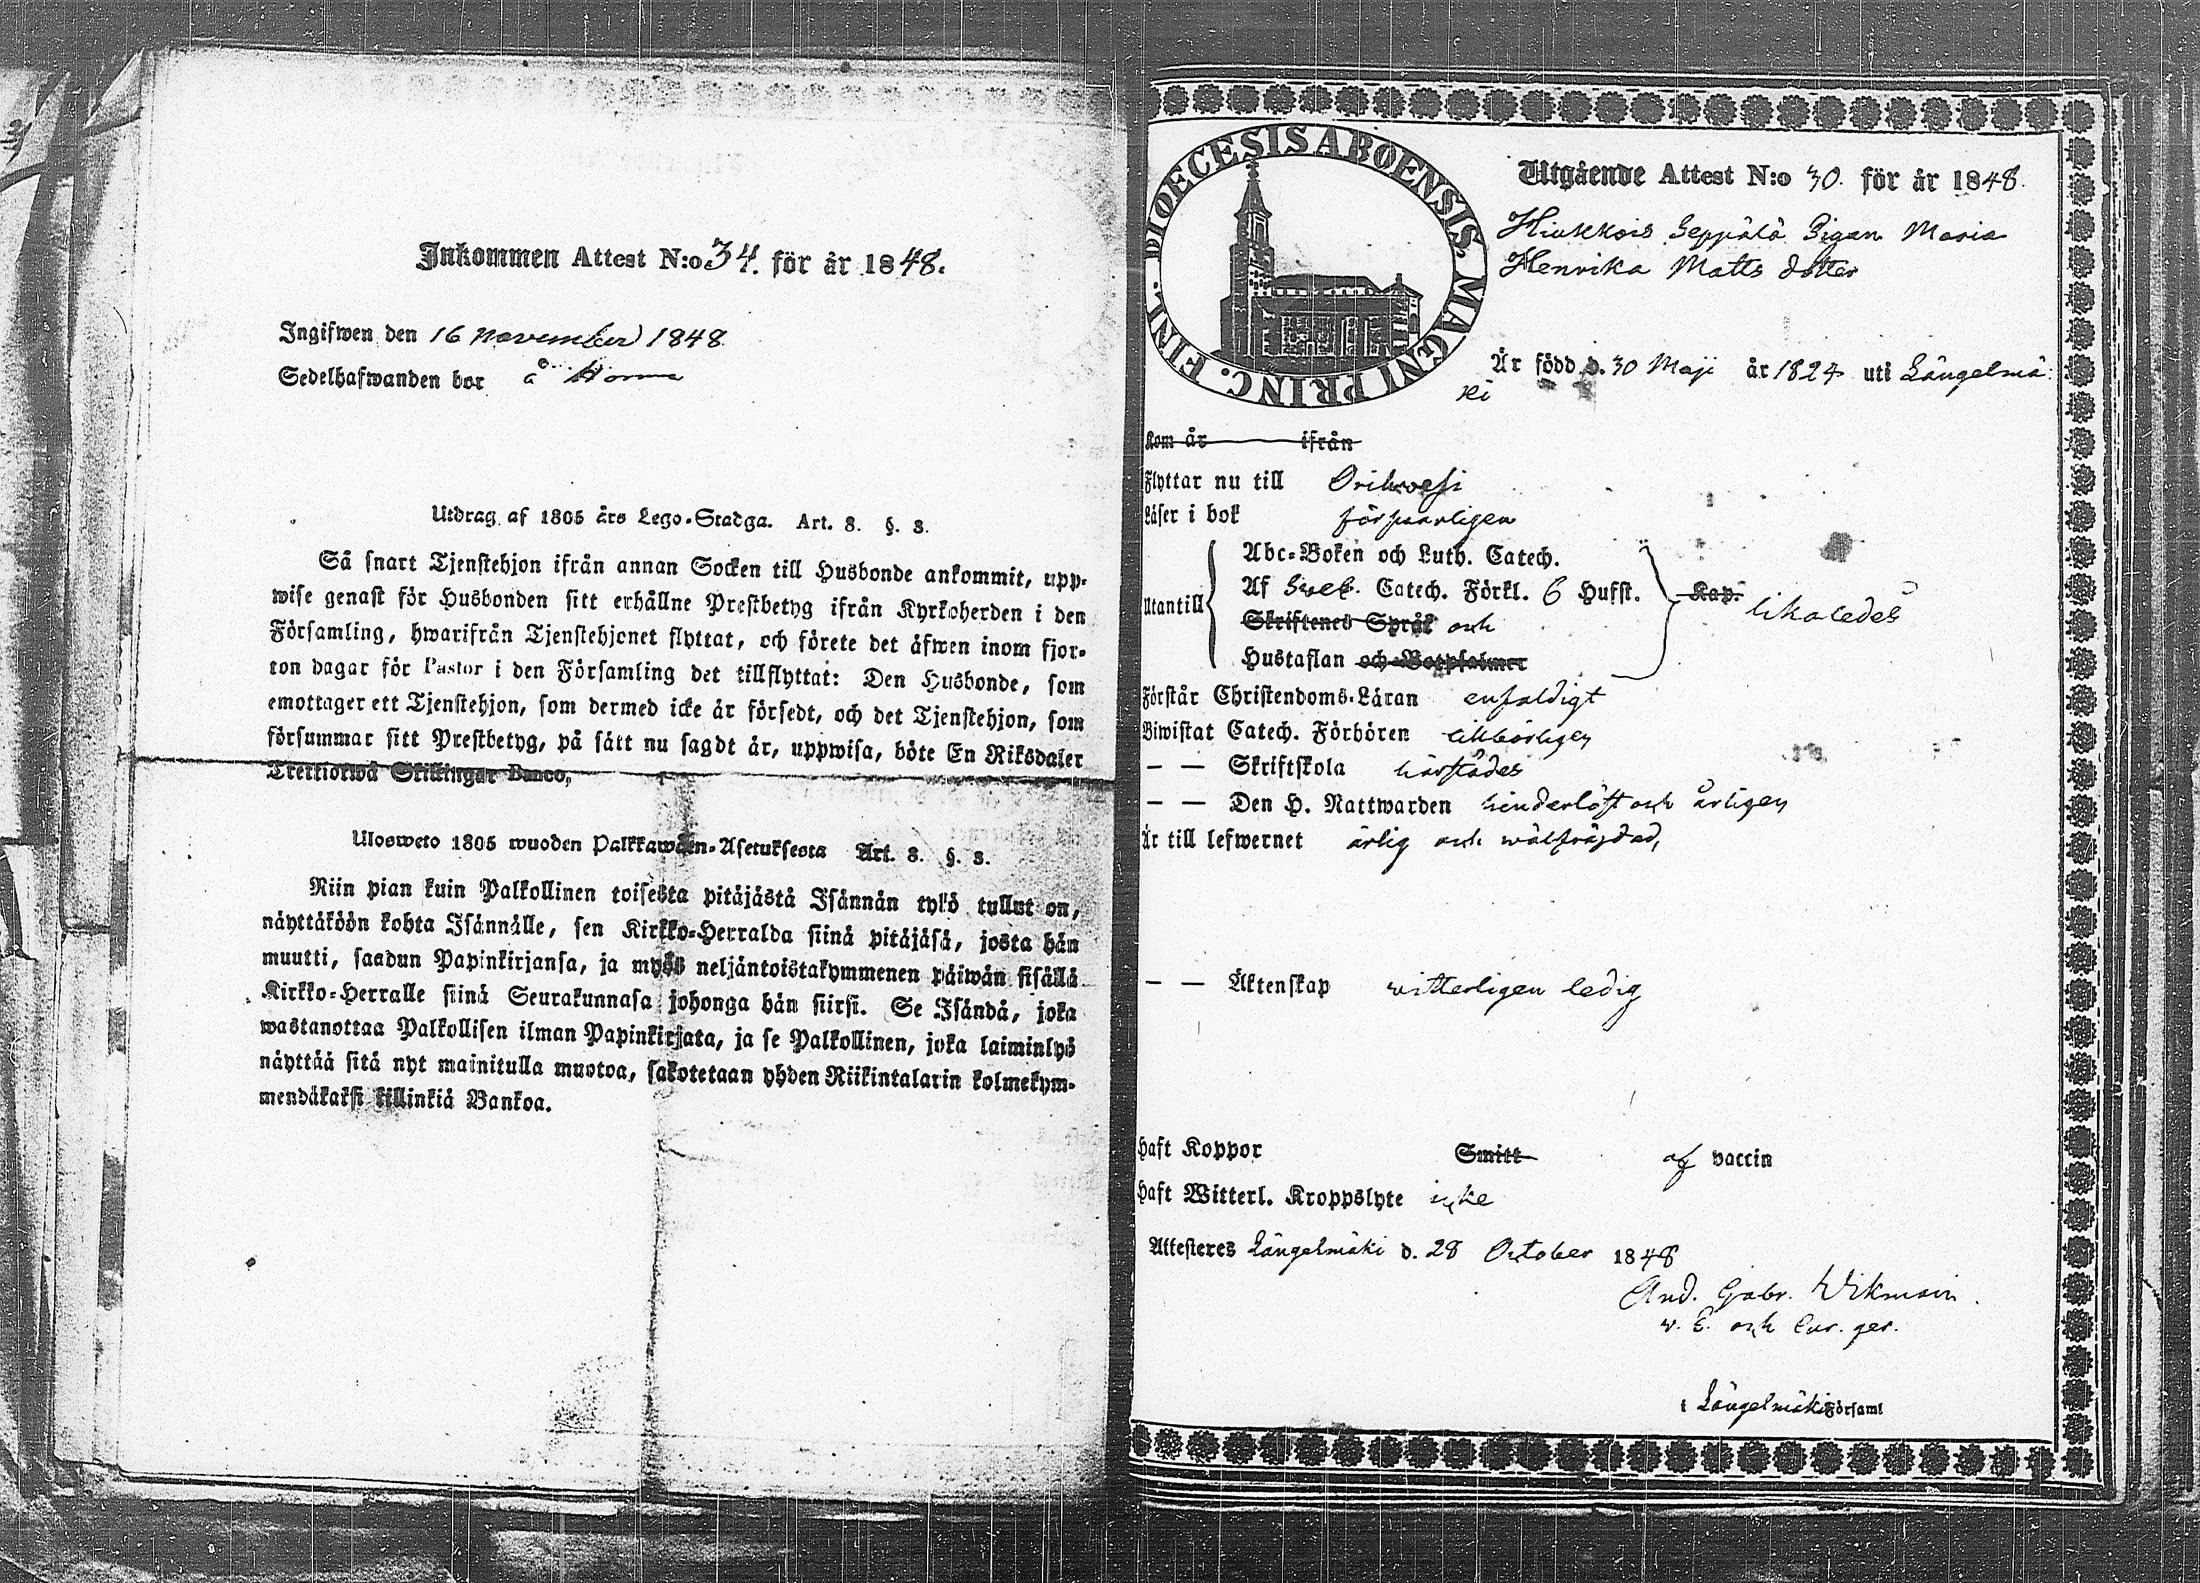 Inkommen Attest N:o 34. för år 1848.
Ingifwen den 16 november 1848
Sedelhafwanden bor å Horma
Utdrag af 1805 års Lego-Stadga. Art. 8. §. 3.
Så snart Tjenstehjon ifrån annan Socken till Husbonde ankommit, upp-
wise genast för Husbonden sitt erhållne Prestbetyg ifrån Kyrkoherden i den
Församling, hwarifrån Tjenstehjonet flyttat, och förete det äfwen inom fjor-
ton dagar för Pastor i den Församling det tillflyttat: Den Husbonde, som
emottager ett Tjenstehjon, som dermed icke är försedt, och det Tjenstehjon, som
försummar sitt Prestbetyg, på sätt nu sagdt är, uppwisa, böte En Riksdaler
Trettiotwå Skillingar Banco,
Ulosweto 1805 wuoden Palkkawäen-Asetuksesta Art. 8. §. 3.
Niin pian kuin Palkollinen toisesta pitäjästä Isännän tykö tullut on,
näyttäköön kohta Isännälle, sen Kirkko-Herralda siinä pitäjäsä, josta hän
muutti, saadun Papinkirjansa, ja myös neljäntoistakymmenen päiwän sisällä
Kirkko-Herralle siinä Seurakunnasa johonga hän siirsi. Se Isändä, joka
wastanottaa Palkollisen ilman Papinkirjata, ja se Palkollinen, joka laiminlyö
näyttää sitä nyt mainitulla muotoa, sakotetaan yhden Riikintalarin kolmekym-
mendäkaksi killinkiä Bankoa.
DIOECESIS ABOENSIS. MAGNI PRINC. FINL.
Utgående Attest N:o 30. för år 1848.
Seppälä Pigan Maria
Henrika Matts dotter
Är född d. 30 Maji år 1824 uti Längelmä
ki
Kom år ifrån
Flyttar nu till Orihwesi
Läser i bok förswarligen
Utantill
Abc-Boken och Luth. Catech.
Af Sveb. Catech. Förkl. 6 Hufst. Kap. likaledes
Skriftenes Språk och
Hustaflan och Botpsalmer
Förstår Christendoms-Läran enfaldigt
Biwistat Catech. Förhören tillbörligen
— — Skriftskola härstädes
— — Den H. Nattwarden hinderlöst och årligen
Är till lefwernet ärlig och wälfräjdad,
— — Äktenskap witterligen ledig
Haft Koppor Smitt af vaccin
Haft Witterl. Kroppslyte icke
Attesteres Längelmäki d. 28 October 1848
And. Gabr. Wikman.
v. C. och Cur. ger.
i Längelmäki Församl